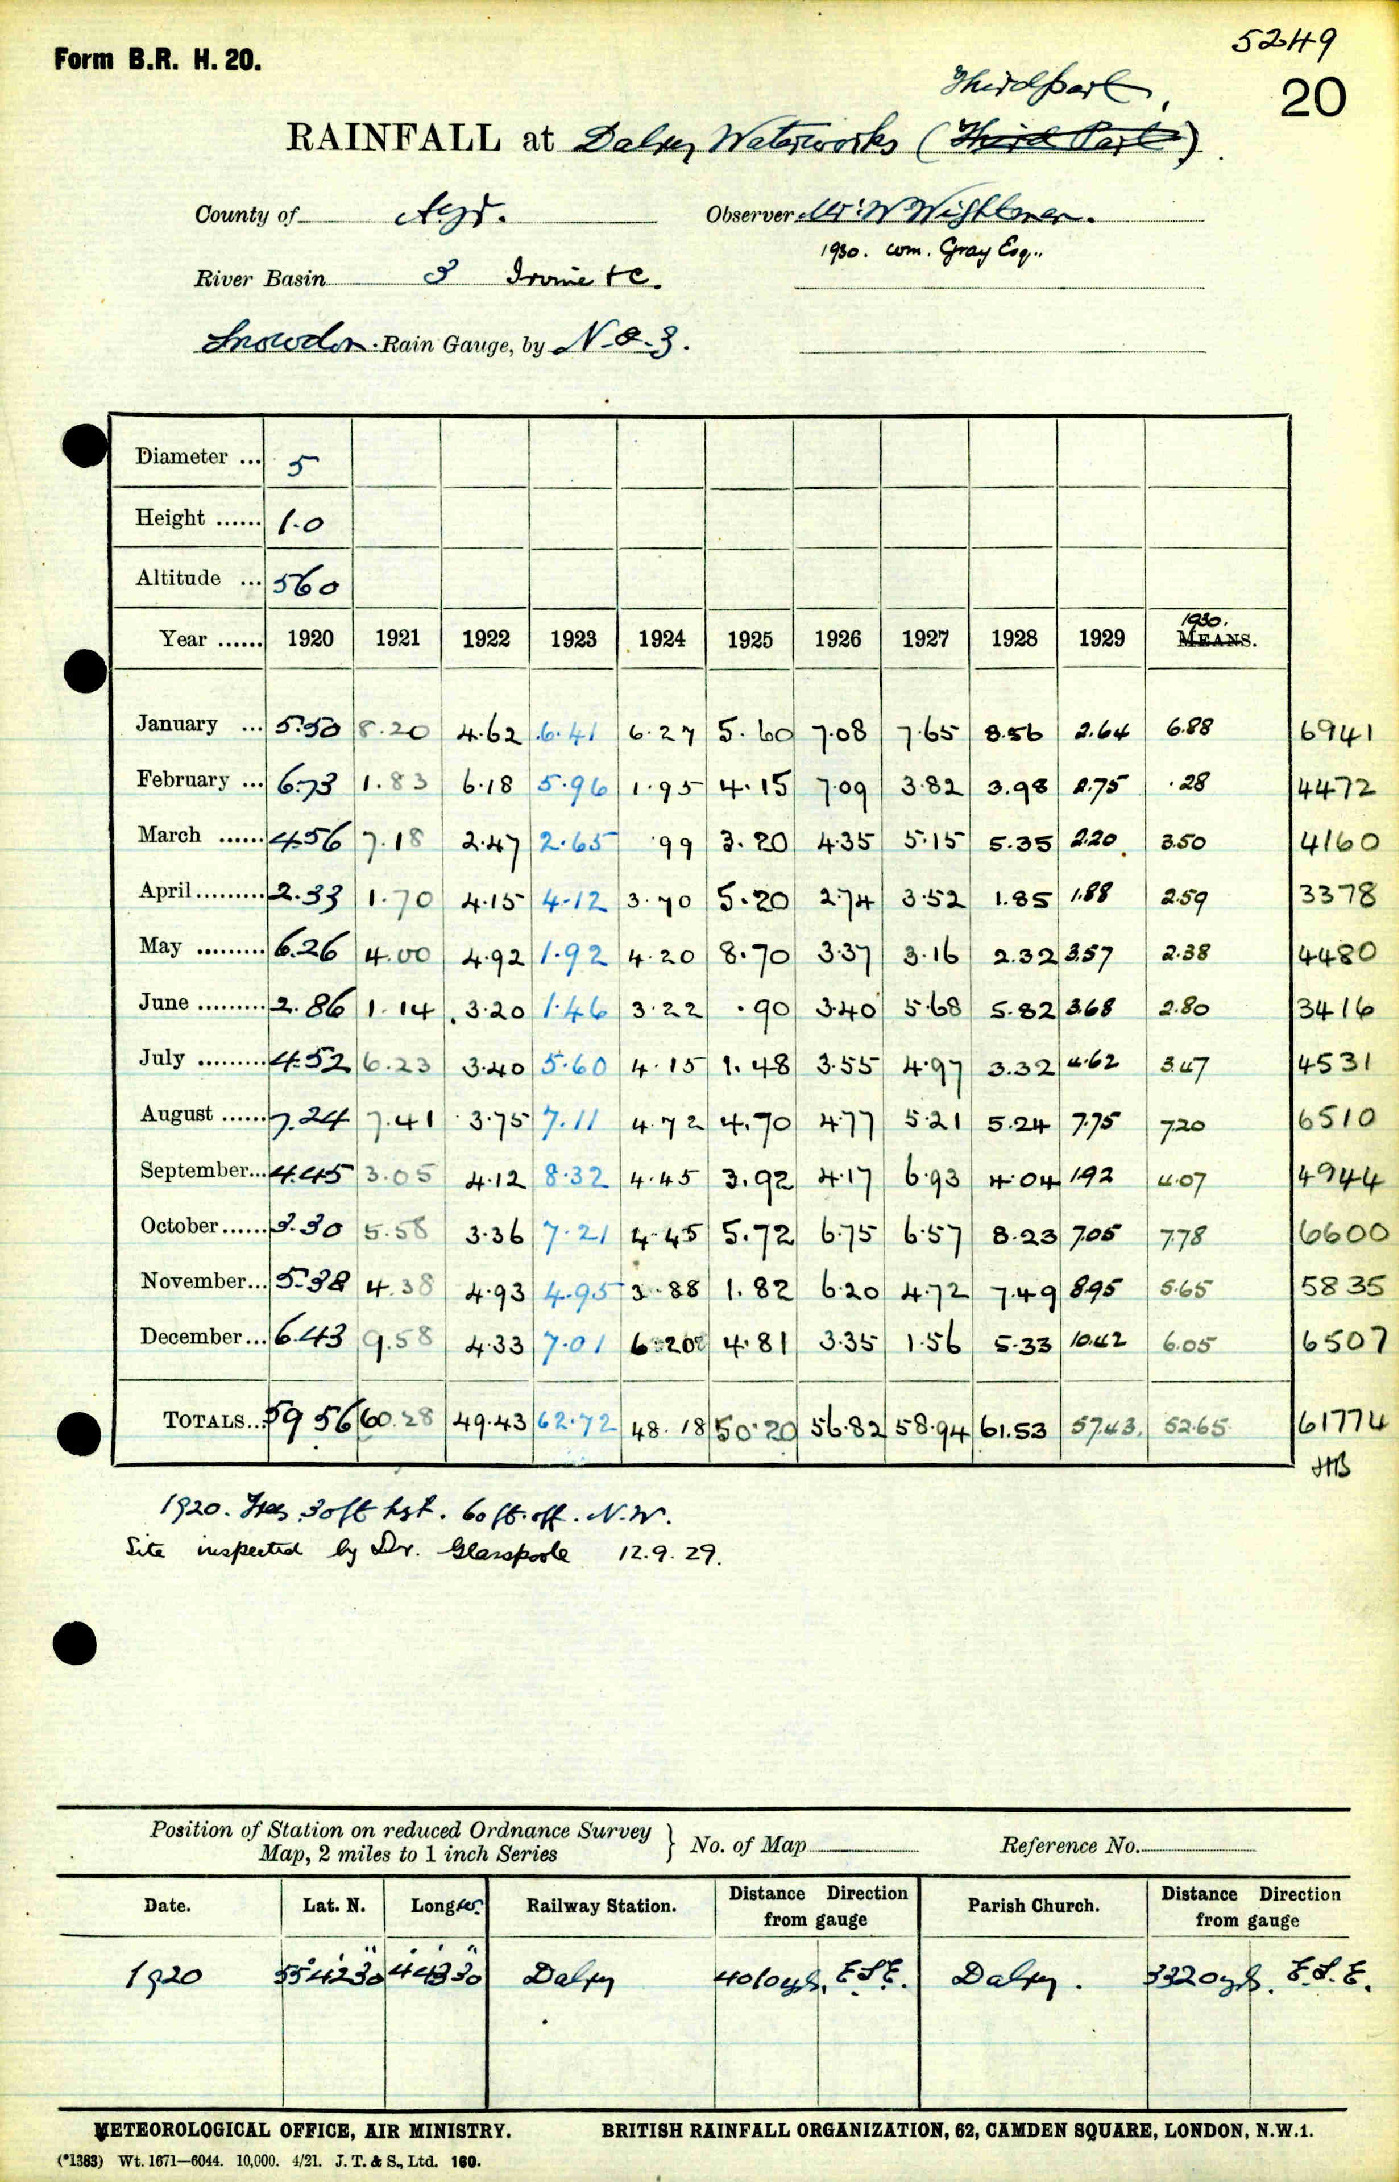 5249
Form B.R. H. 20.
20
Thirdpart,
RAINFALL at Dalry Waterworks (Third Part)
County of Ayr. Observer Mr. W Wightman.
1930. Wm. Gray Esq..
River Basin 3 Irvine &c.
Snowdon Rain Gauge, by N. & Z.
Diameter ... 5
Height ...... 1.0
Altitude ... 560
1930.
Year ...... 1920 1921 1922 1923 1924 1925 1926 1927 1928 1929 MEANS.
January ... 5.50 8.20 4.62 6.41 6.27 5.60 7.08 7.65 8.56 2.64 6.88 6941
February ... 6.73 1.83 6.18 5.96 1.95 4.15 7.09 3.82 3.98 2.75 .28 4472
March ...... 4.56 7.18 2.47 2.65 .99 3.20 4.35 5.15 5.35 2.20 3.50 4160
April ......... 2.33 1.70 4.15 4.12 3.70 5.20 2.74 3.52 1.85 1.88 2.59 3378
May ......... 6.26 4.00 4.92 1.92 4.20 8.70 3.37 3.16 2.32 3.57 2.38 4480
June ......... 2.86 1.14 3.20 1.46 3.22 .90 3.40 5.68 5.82 3.68 2.80 3416
July ......... 4.52 6.23 3.40 5.60 4.15 1.48 3.55 4.97 3.32 4.62 3.47 4531
August ...... 7.24 7.41 3.75 7.11 4.72 4.70 4.77 5.21 5.24 7.75 7.20 6510
September... 4.45 3.05 4.12 8.32 4.45 3.92 4.17 6.93 4.04 1.92 4.07 4944
October...... 3.30 5.58 3.36 7.21 4.45 5.72 6.75 6.57 8.23 7.05 7.78 6600
November... 5.38 4.38 4.93 4.95 3.88 1.82 6.20 4.72 7.49 8.95 5.65 5835
December... 6.43 9.58 4.33 7.01 6.20 4.81 3.35 1.56 5.33 10.42 6.05 6507
TOTALS... 59 56 60.28 49.43 62.72 48.18 50.20 56.82 58.94 61.53 57.43. 52.65 61774
HB
1920. Trees 30 ft hgt. 60 ft. off. N.W.
Site inspected by Dr. Glasspoole 12.9.29.
Position of Station on reduced Ordnance Survey
Map, 2 miles to 1 inch Series } No. of Map Reference No.
Date. Lat. N. Long W. Railway Station. Distance Direction from gauge Parish Church. Distance Direction from gauge
1920 55° 42' 30" 4° 43' 30" Dalry 4010 yds. E.S.E. Dalry. 3320 yds. E.S.E.
METEOROLOGICAL OFFICE, AIR MINISTRY. BRITISH RAINFALL ORGANIZATION, 62, CAMDEN SQUARE, LONDON, N.W.1.
(*1383) Wt. 1671—6044. 10,000. 4/21. J. T. & S., Ltd. 160.